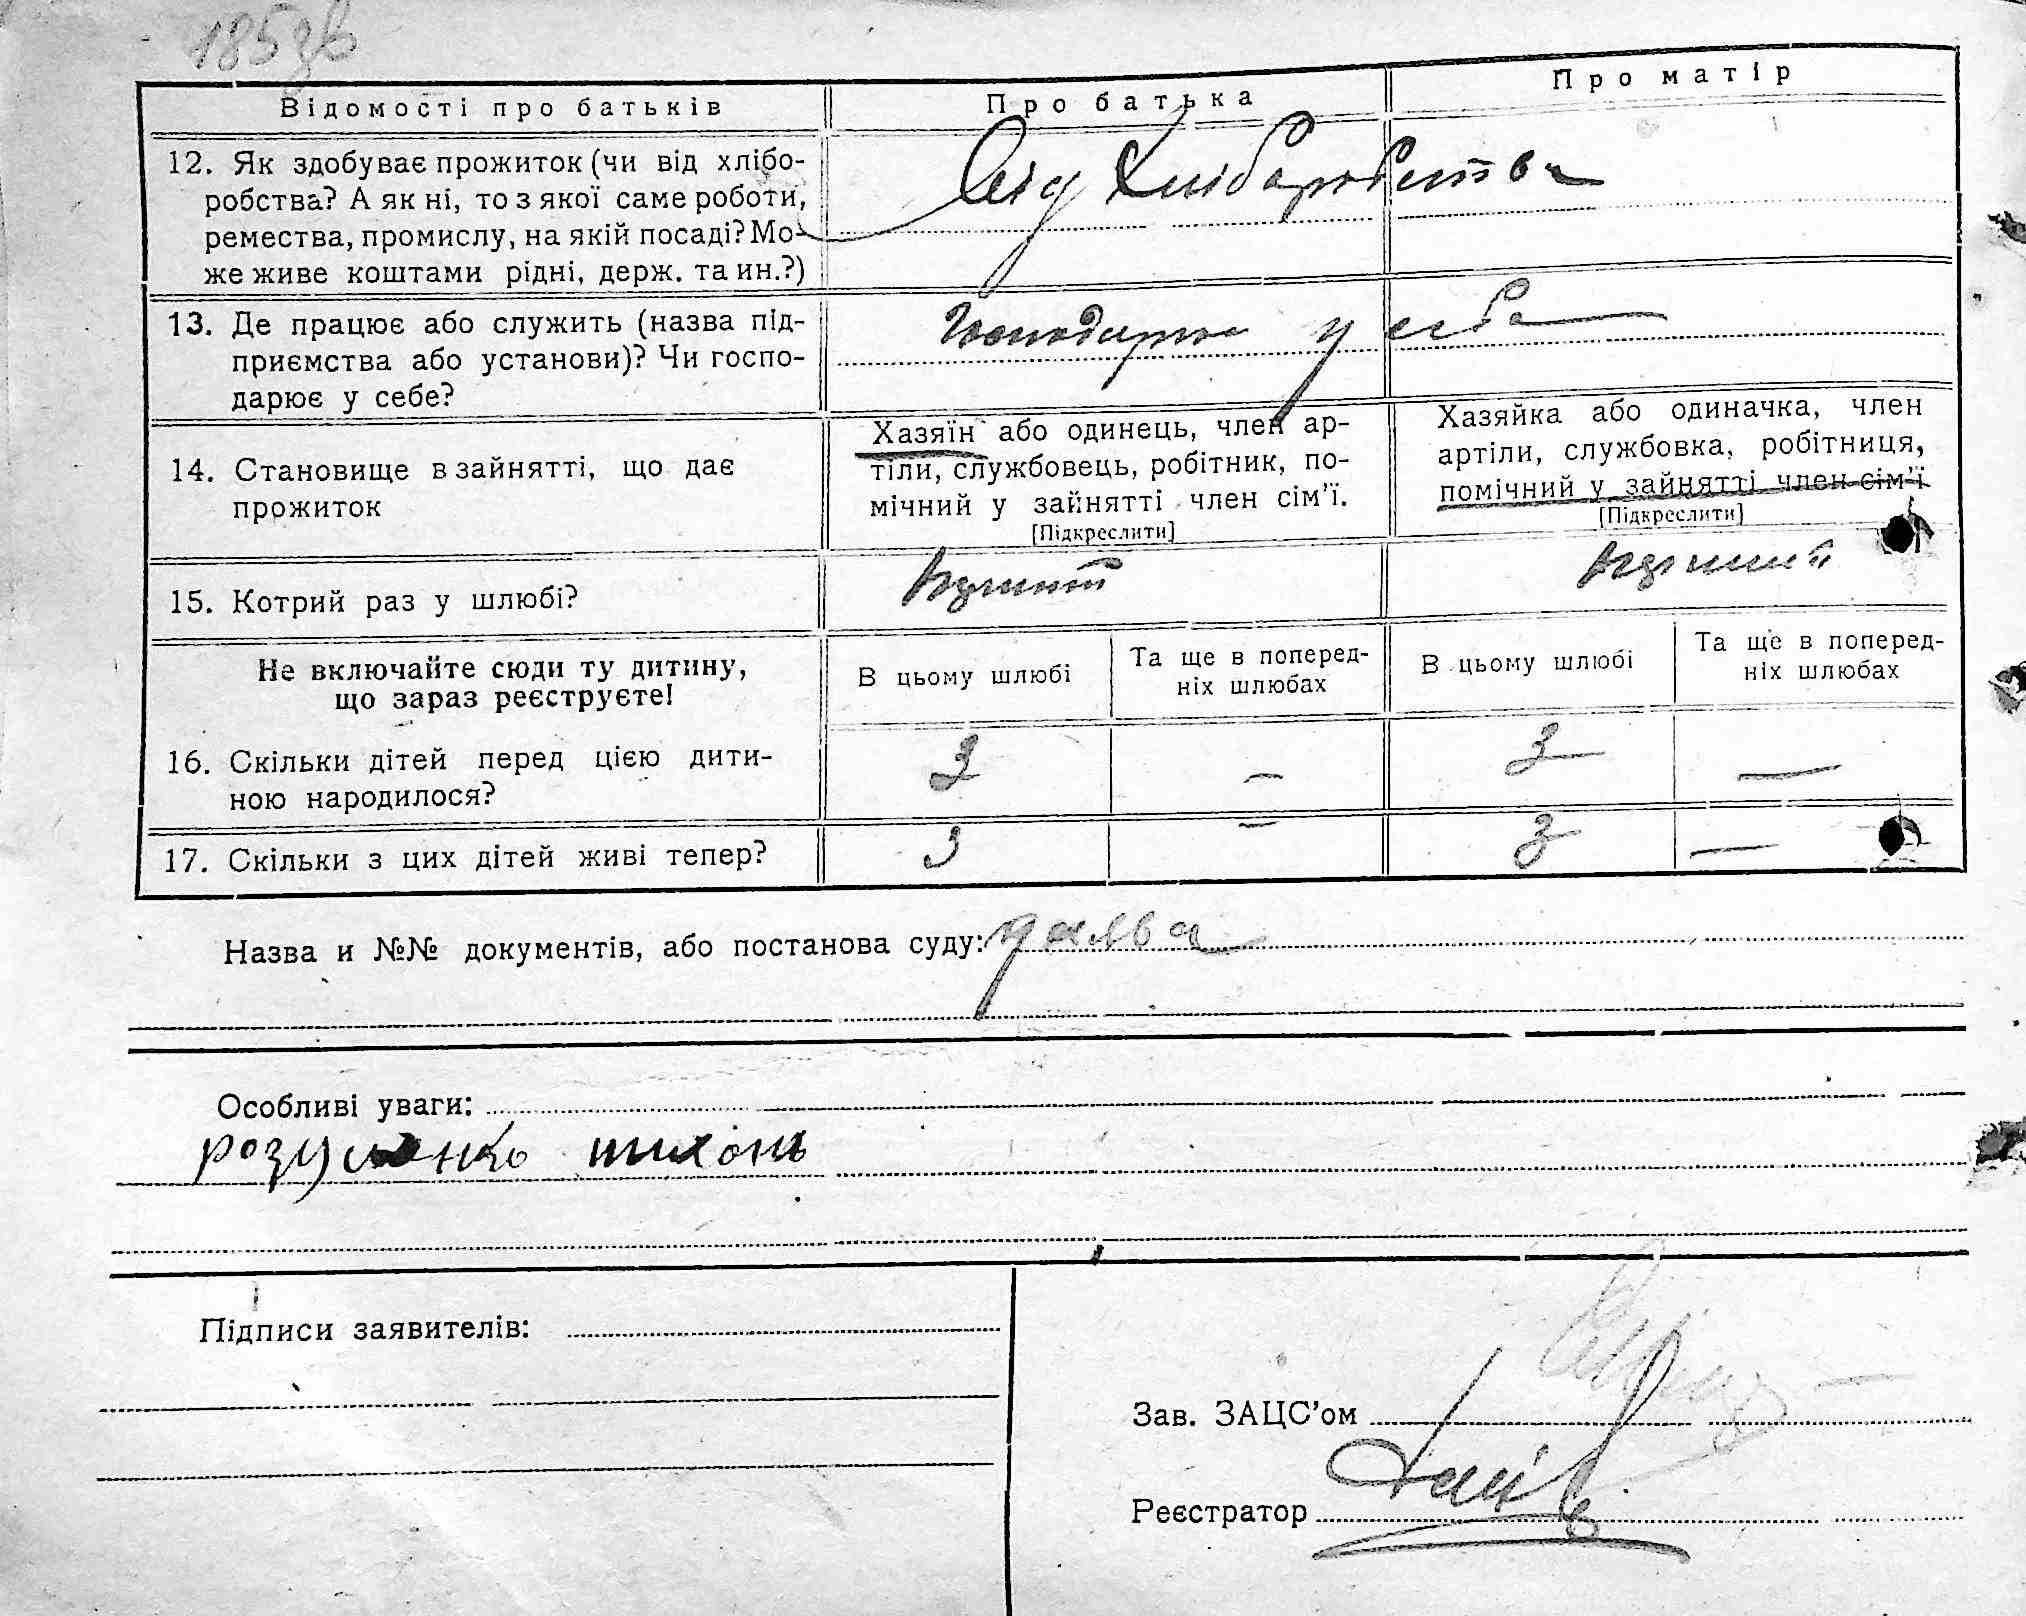 185зв
Відомості про батьків
Про батька
Про матір
12. Як здобуває прожиток (чи від хлібо-
робства? А як ні, то з якої саме роботи,
ремества, промислу, на якій посаді? Мо-
же живе коштами рідні, держ. та ин.?)
Від Хліборобства
13. Де працює або служить (назва під-
приємства або установи)? Чи госпо-
дарює у себе?
Господарює у себе
14. Становище в зайнятті, що дає
прожиток
Хазяїн або одинець, член ар-
тіли, службовець, робітник, по-
мічний у зайнятті член сім'ї.
[Підкреслити]
Хазяйка або одиначка, член
артіли, службовка, робітниця,
помічний у зайнятті член сім'ї
[Підкреслити]
15. Котрий раз у шлюбі?
Не включайте сюди ту дитину,
що зараз реєструєте!
В цьому шлюбі
Та ще в поперед-
ніх шлюбах
В цьому шлюбі
Та ще в поперед-
ніх шлюбах
16. Скільки дітей перед цією дити-
ною народилося?
3 — 3 —
17. Скільки з цих дітей живі тепер?
3 — 3 —
Назва и №№ документів, або постанова суду:
Особливі уваги:
розуменко тихонь
Підписи заявителів:
Зав. ЗАЦС'ом
Реєстратор